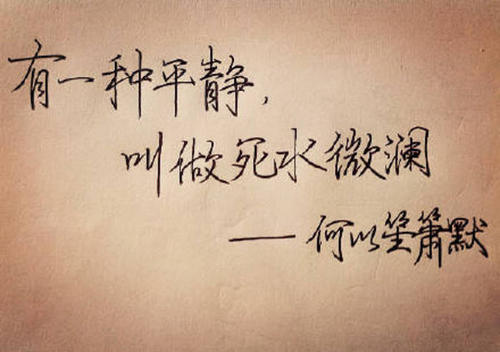 有一种平静，
叫做死水微澜
——何以笙箫默